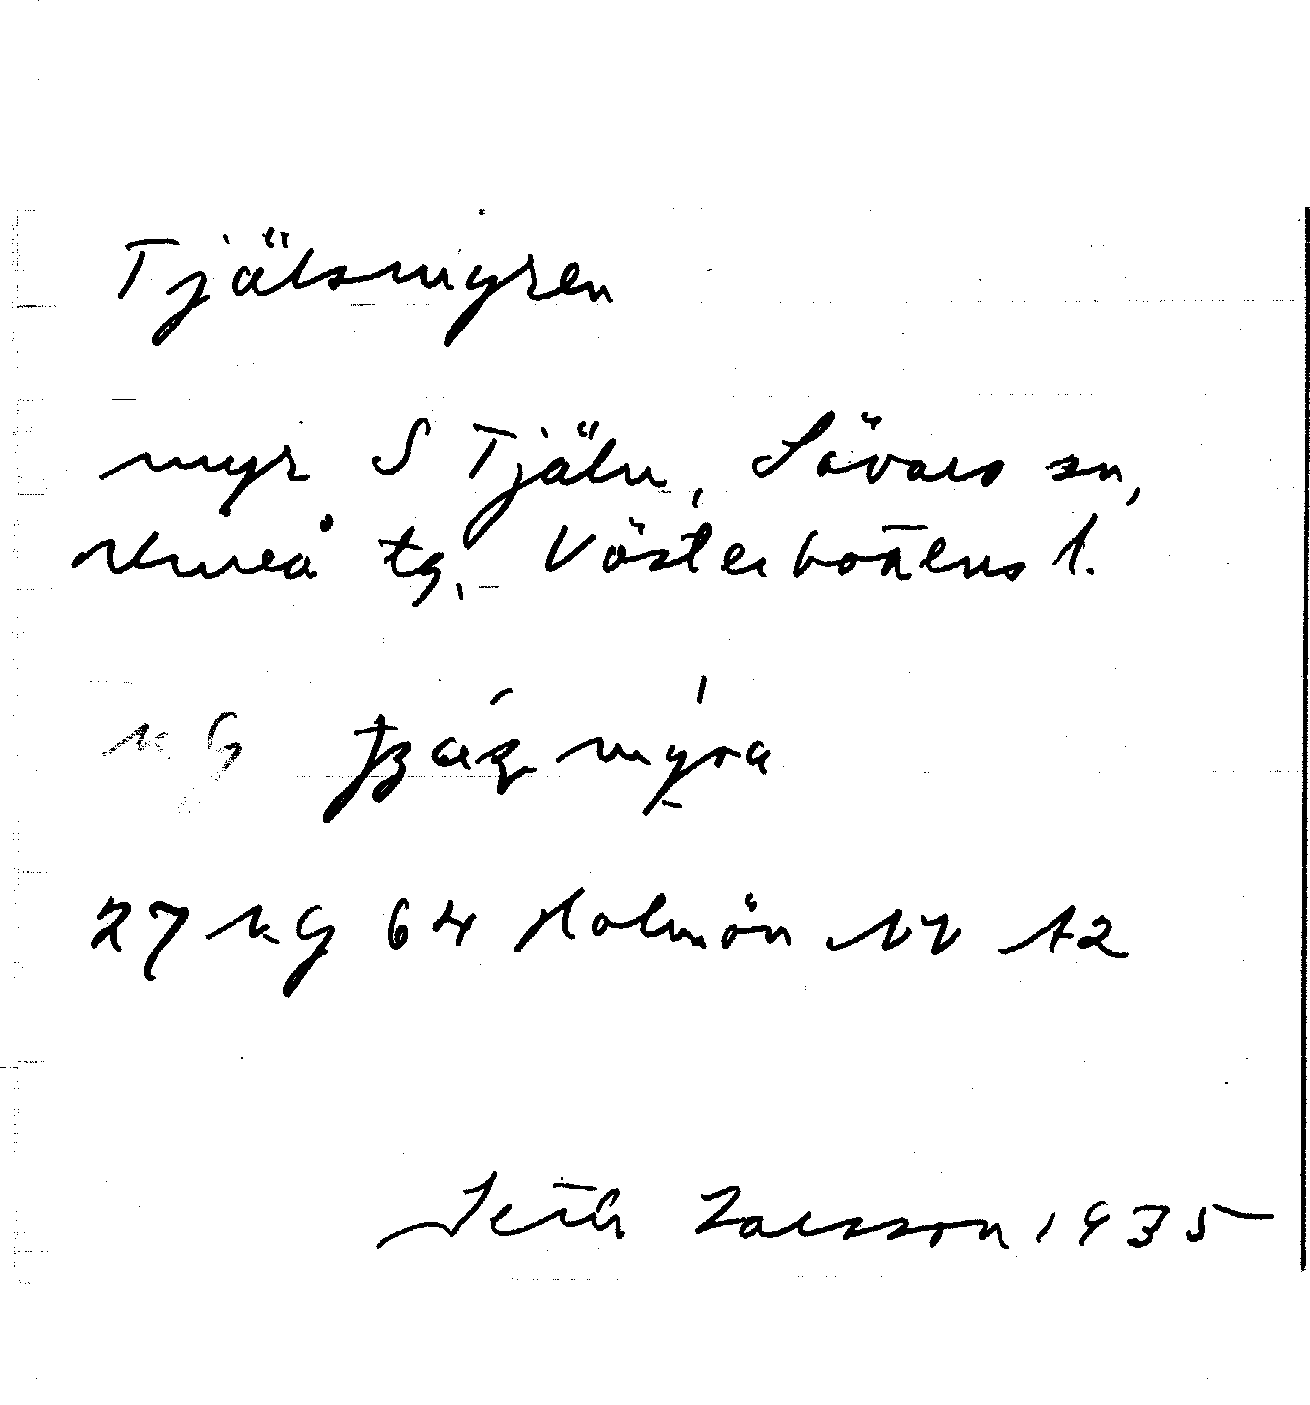 Tjälsmyren
myr S Tjäln, Sävars sn,
Umeå tg, Västerbottens l.
myra
27 NG 64 Holmön NV 12
Seth Larsson 1935